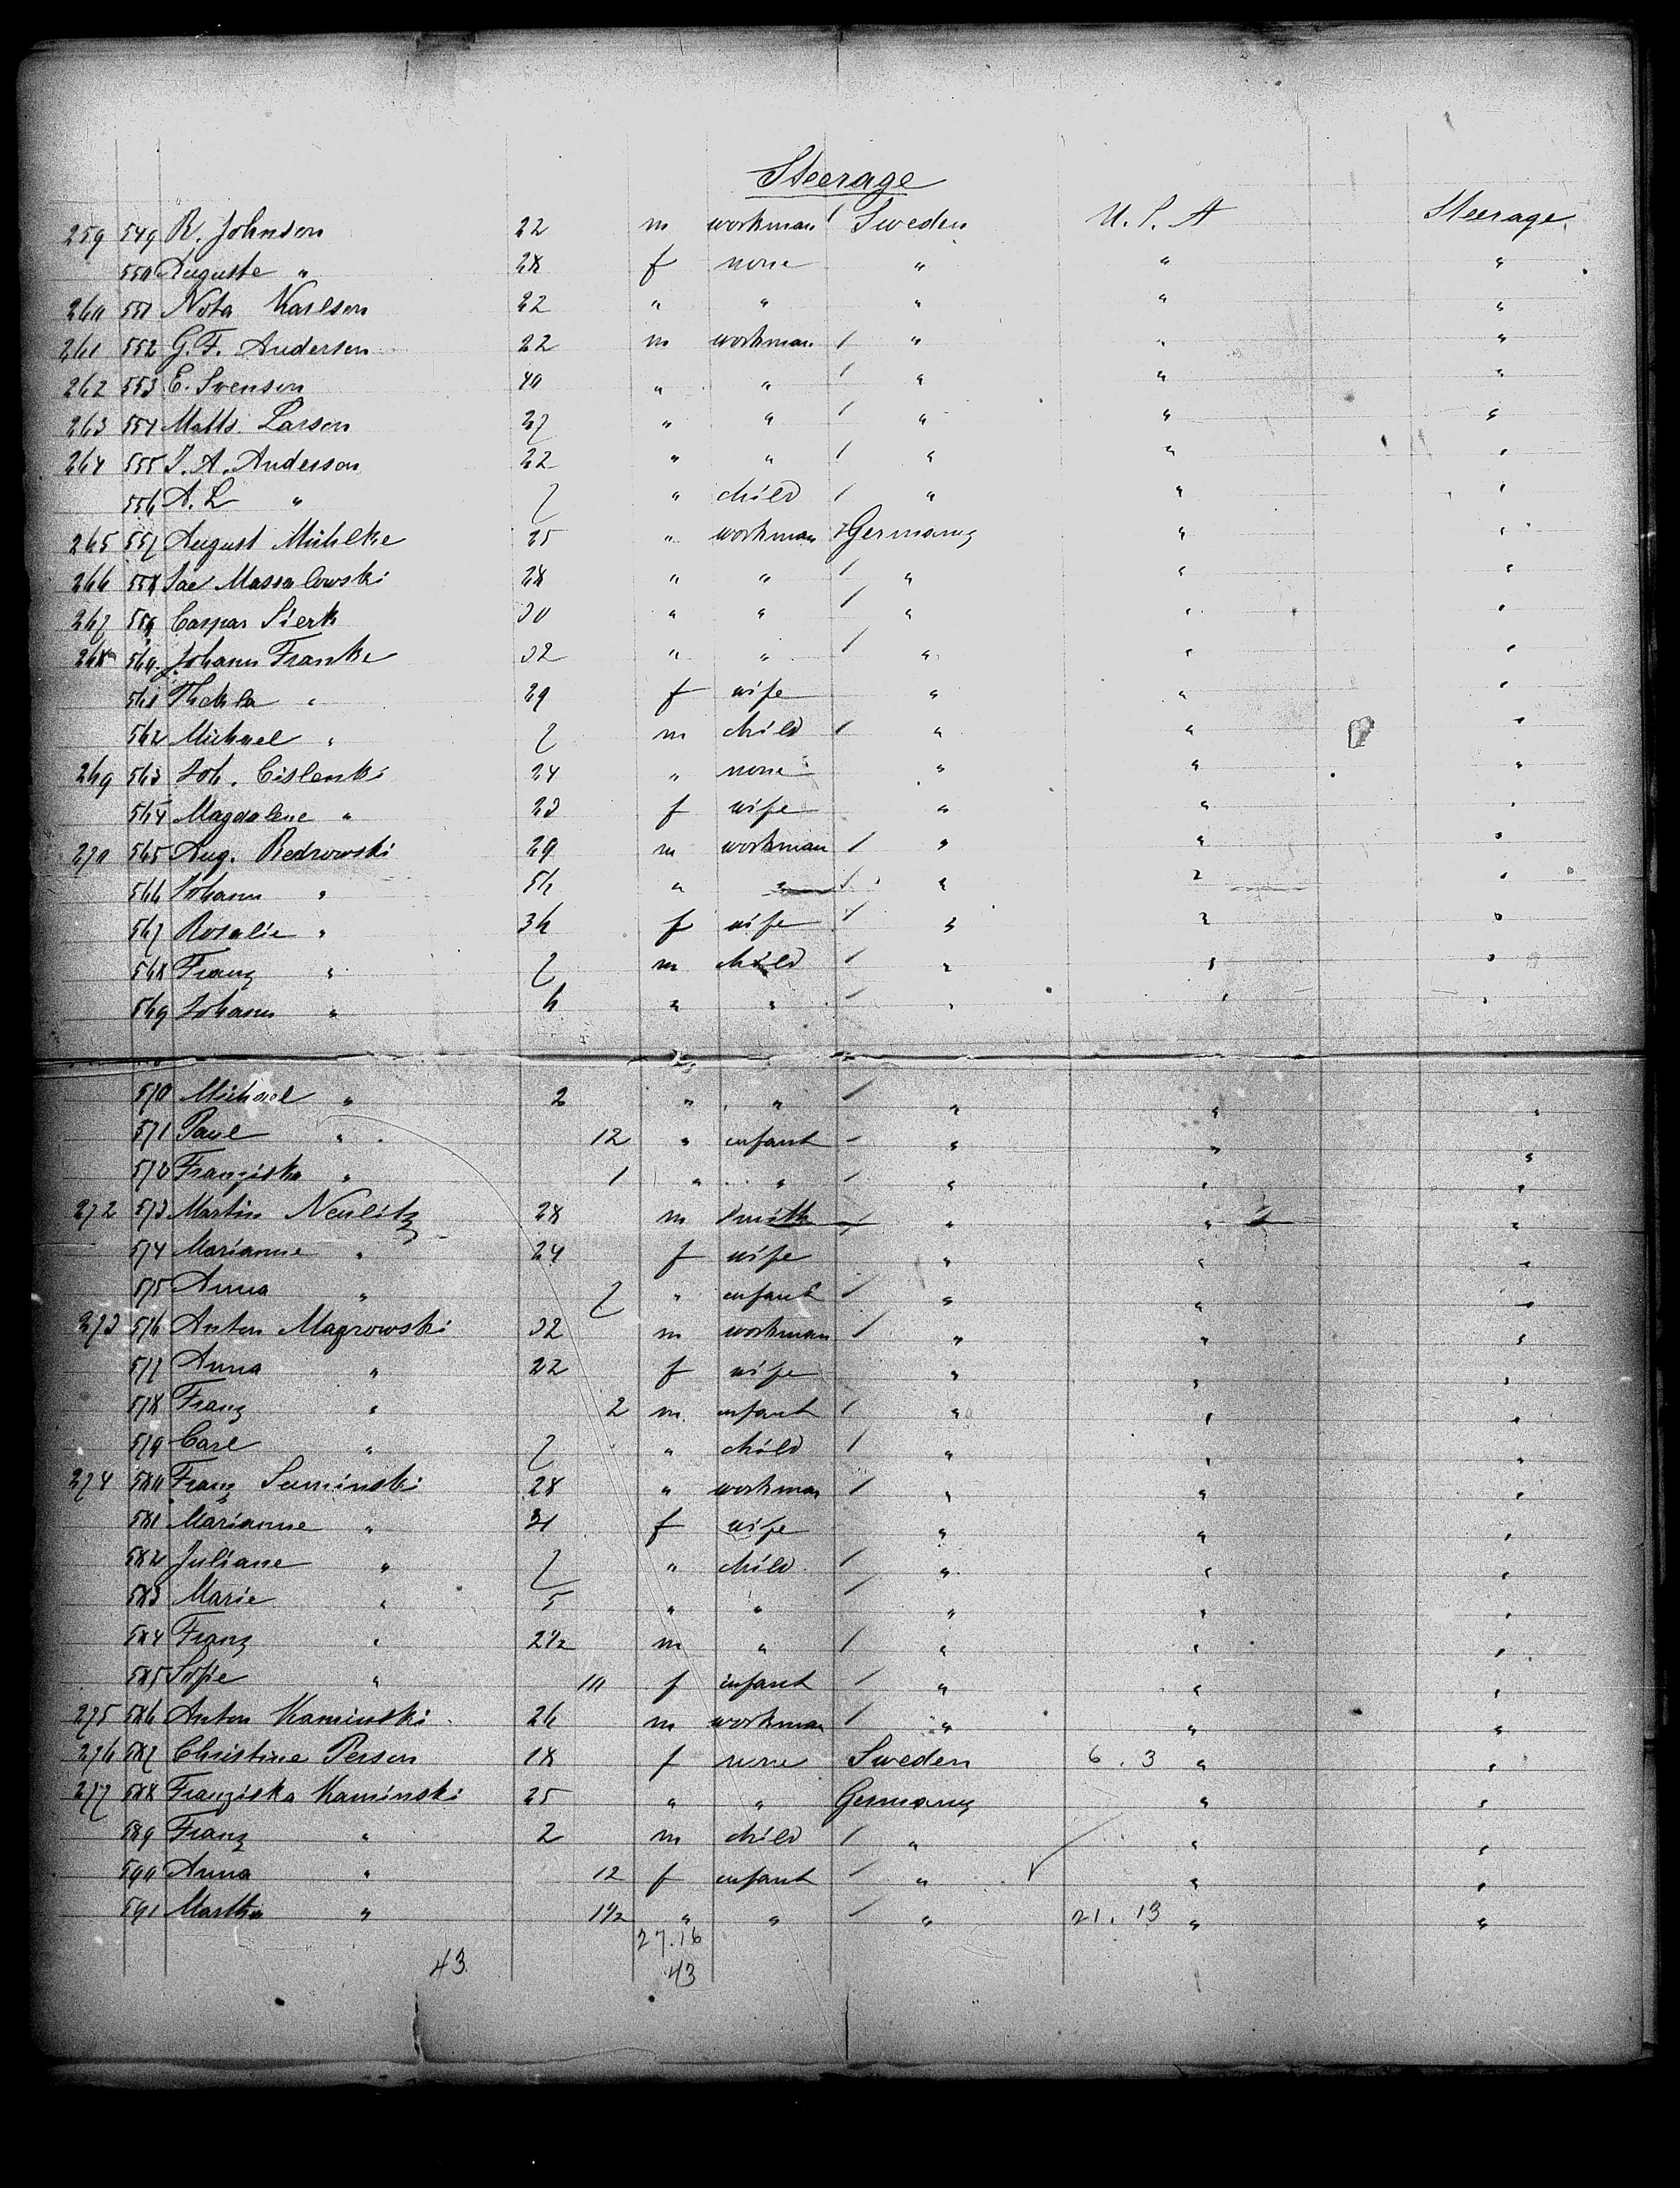 Steerage
259 549 R. Johnson 22 m workman / Sweden U. S. A Steerage
550 Auguste " 28 f none " " "
260 551 Nota Karlson 22 " " " " "
261 552 G. F. Anderson 22 m workman / " " "
262 553 E. Svenson 40 " " / " " "
263 554 Matts Larson 27 " " / " " "
264 555 J. A. Anderson 22 " " / " " "
556 A. L " 7 " child / " " "
265 557 August Mühlke 25 " workman / Germany " "
266 558 Jac Massalowski 28 " " / " " "
267 559 Caspar Sierk 30 " " / " " "
268 560 Johann Franke 32 " " / " " "
561 Thekla " 29 f wife " " "
562 Michael " 7 m child / " " "
269 563 Joh. Cislenki 24 " none " " "
564 Magdalene " 23 f wife " " "
270 565 Aug. Redrowski 29 m workman / " " "
566 Johann " 56 " " / " " "
567 Rosalie " 36 f wife / " " "
568 Franz " 7 m child / " " "
569 Johann " 6 " " / " " "
570 Michael " 2 " " / " " "
571 Paul " 12 " infant / " " "
572 Franziska " 1 " " / " " "
272 573 Martin Neulitz 28 m smith / " " "
574 Marianne " 24 f wife " " "
575 Anna " 7 " infant / " " "
273 576 Anton Magrowski 32 m workman / " " "
577 Anna " 22 f wife " " "
578 Franz " 2 m infant / " " "
579 Carl " 7 " child / " " "
274 580 Franz Suminski 28 " workman / " " "
581 Marianne " 31 f wife " " "
582 Juliane " 7 " child / " " "
583 Marie " 5 " " / " " "
584 Franz " 2½ m " / " " "
585 Sofie " 10 f infant / " " "
275 586 Anton Kaminski 26 m workman / " " "
276 587 Christine Person 18 f none Sweden 6. 3 " "
277 588 Franziska Kaminski 25 " " Germany " "
589 Franz " 2 m child / " " "
590 Anna " 12 f infant / " " "
591 Martha " 1½ " " / " 21. 13 " "
27.16
43 43